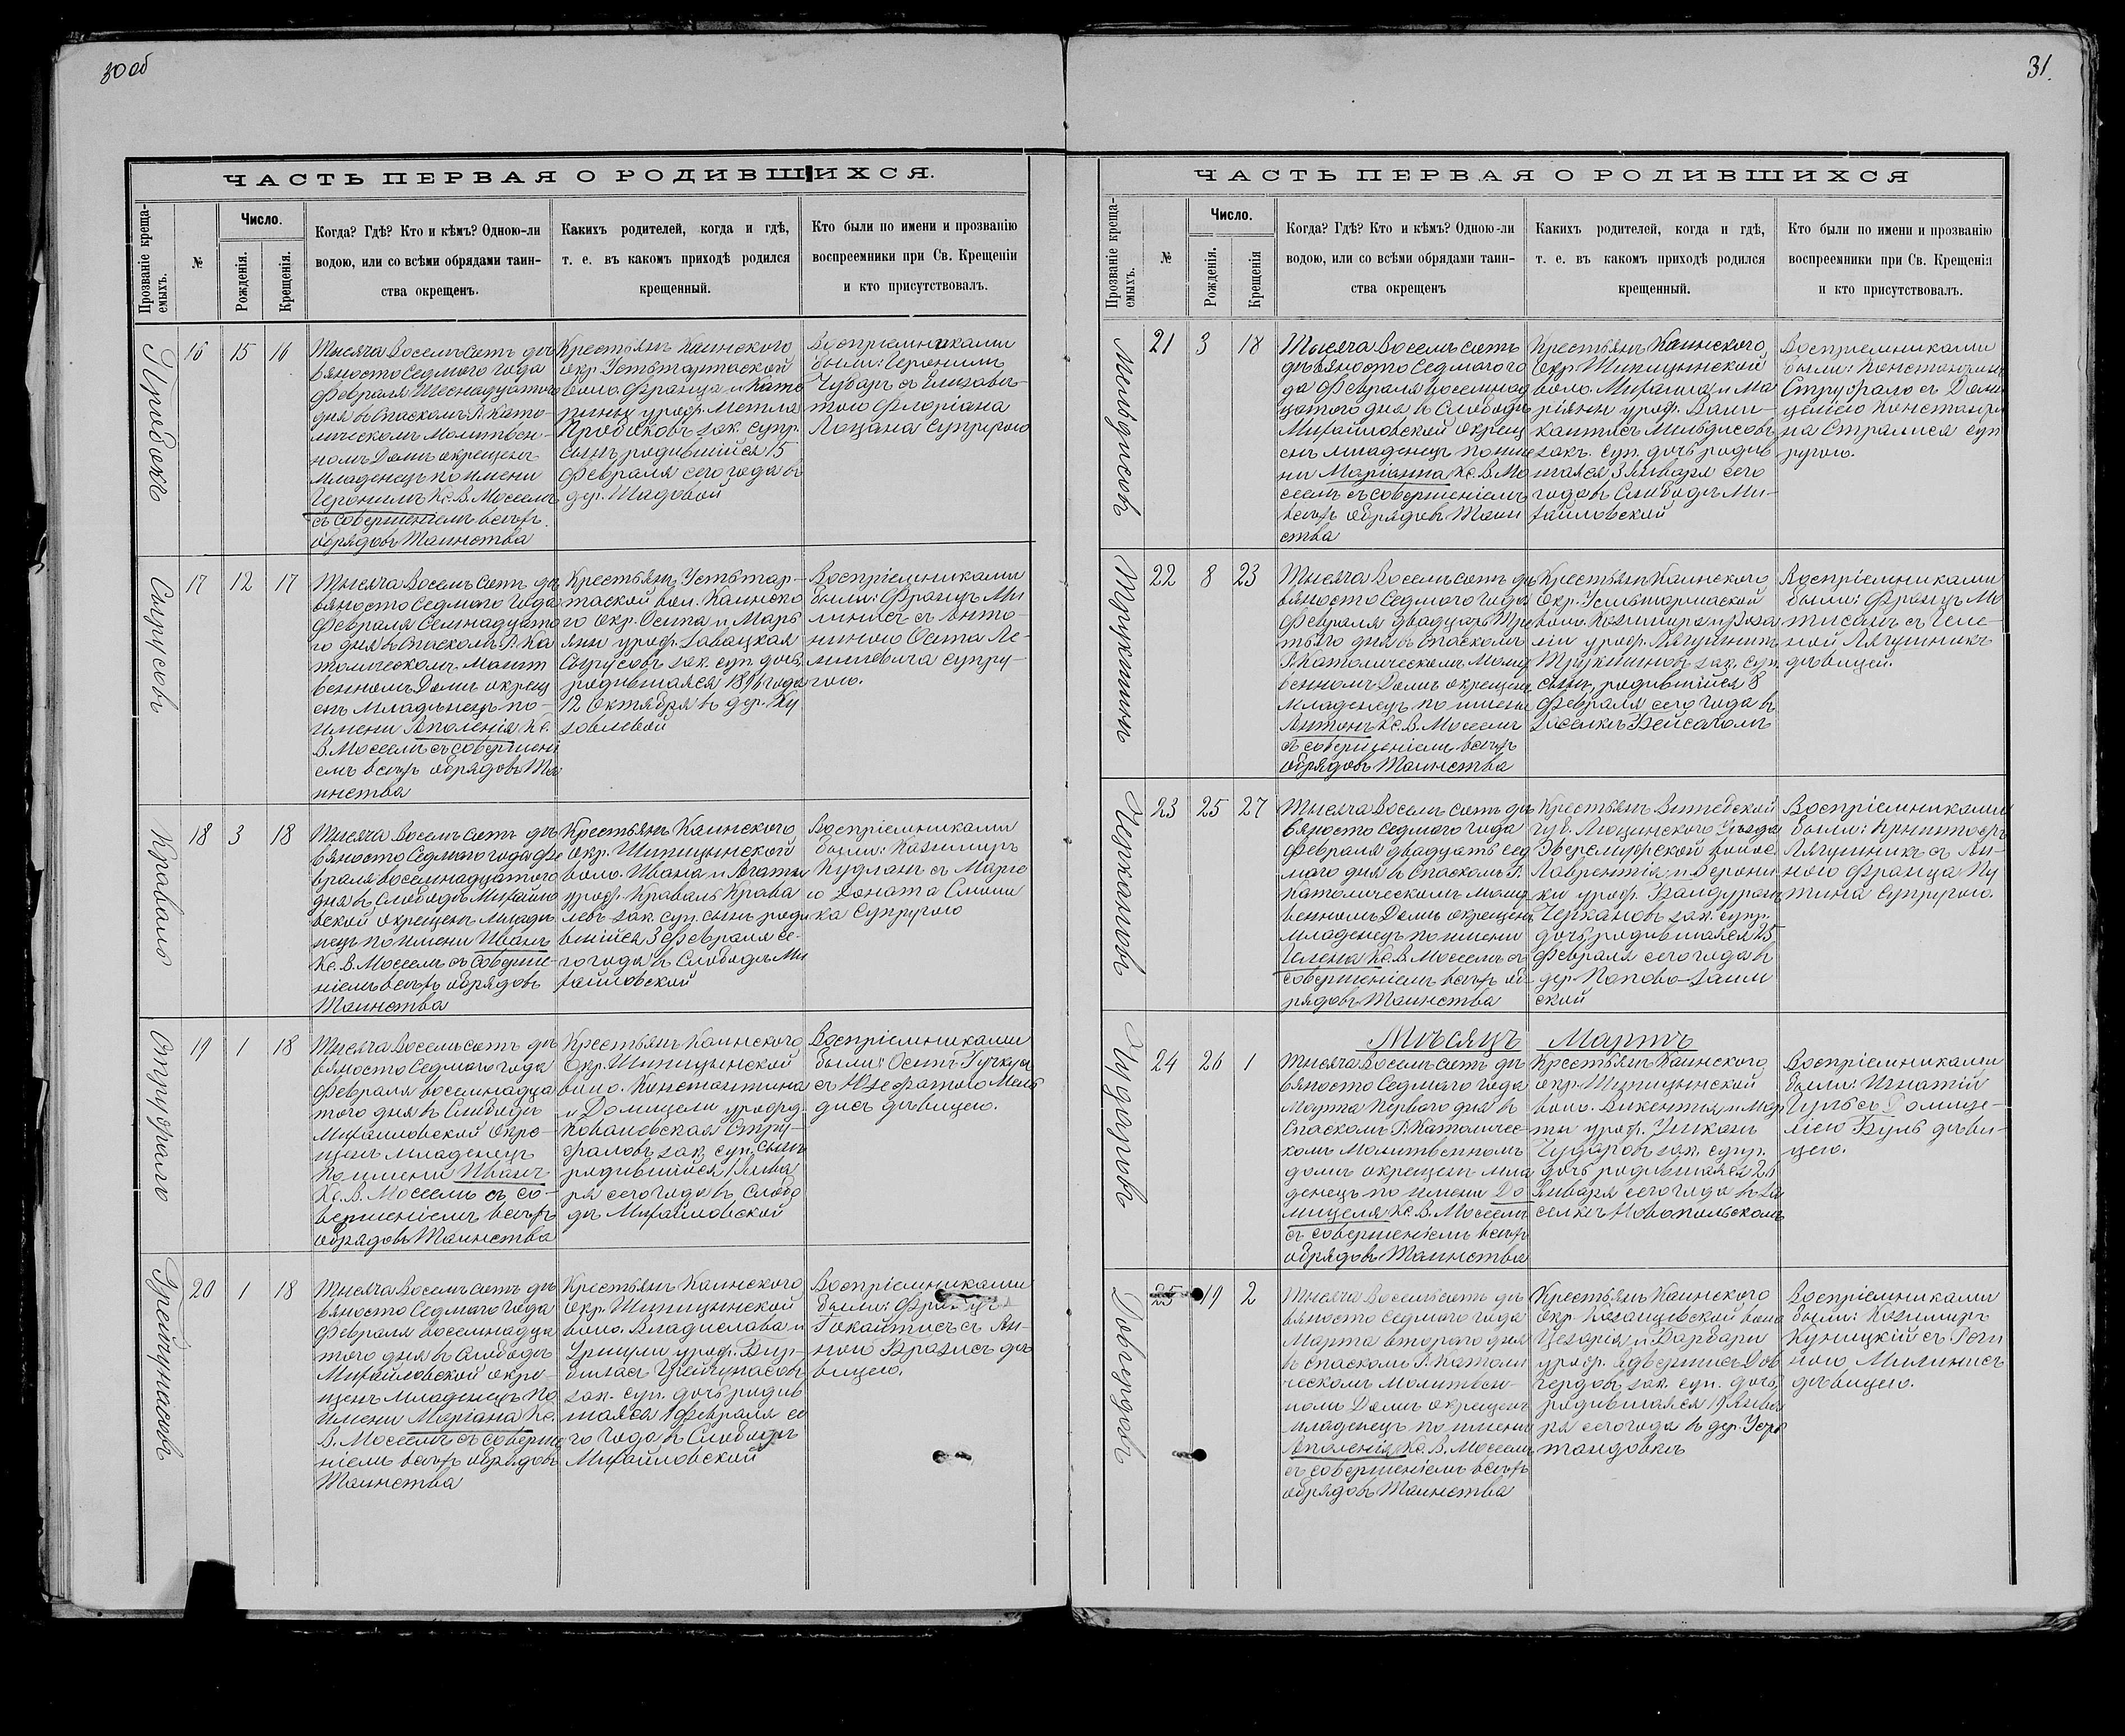 30 об
ЧАСТЬ ПЕРВАЯ О РОДИВШИХСЯ.
Прозваніе креща-
емыхъ.
№
Число.
Рожденія.
Крещенія.
Когда? Гдѣ? Кто и кѣмъ? Одною-ли
водою, или со всѣми обрядами таин-
ства окрещенъ.
Какихъ родителей, когда и гдѣ,
т. е. въ какомъ приходѣ родился
крещенный.
Кто были по имени и прозванію
воспреемники при Св. Крещеніи
и кто присутствовалъ.
16 15 16
Тысяча Восемьсотъ де
вяносто Седмого года
Февраля Шеснадцатого
дня въ Спаскомъ Р. Като-
лическомъ Молитвен-
номъ Домѣ окрещенъ
младенецъ по имени
Іеронимъ Кс. В. Моссемъ
съ совершеніемъ всѣхъ
обрядовъ Таинства
Крестьянъ Каинского
окр. Устьтартаской
воло. Франца и Кате
рины урож. Метла
зак. супр.
сынъ родившійся 15
Февраля сего года въ
дер. Шадовой
Воспріемниками
были: Іеронимъ
Чубаръ съ Елизаве-
тою Флоріана
Лоцана супругою
Сырусовъ
17 12 17
Тысяча Восемьсотъ де
вяносто Седмого года
Февраля Семнадцато
го дня въ Спаскомъ Р. Ка
толическомъ Молит
венномъ Домѣ окрещ
енъ младенецъ по-
имени Аполенія Кс.
В. Моссемъ съ совершені
емъ всѣхъ обрядовъ Та
инства
Крестьянъ Устьтар-
таской вол. Каинско
го окр. Осипа и Марь
яны урож. Савацкая
Сырусовъ зак. суп. дочь,
родившаяся 1896 года
12 Октября въ дер. Ку
зовлевой
Воспріемниками
были: Францъ Ми
линисъ съ Анто-
ниною Осипа Ле-
ллиневича супру-
гою.
Кравало
18 3 18
Тысяча Восемьсотъ де
вяносто Седмого года Фе
враля восемнадцатого
дня въ Слободѣ Михайло
вской окрещенъ младе
нецъ по имени Иванъ
Кс. В. Моссемъ съ соверше-
ніемъ всѣхъ обрядовъ
Таинства
Крестьянъ Каинского
окр. Шипицынской
воло. Ивана и Агаты
урож. Краваль Крава
левъ зак. суп. сынъ роди
вшійся 3 Февраля се-
го года въ Слободѣ Ми
хайловской
Воспріемниками
были: Казимиръ
Кудланъ съ Маріе
ю Доната Смоли
ка супругою
Струфало
19 1 18
Тысяча Восемьсотъ де
вяносто Седмого года
Февраля восемнадца
того дня въ Слободѣ
Михайловской окре-
щенъ младенецъ
по имени Иванъ
Кс. В. Моссемъ съ со-
вершеніемъ всѣхъ
обрядовъ Таинства
Крестьянъ Каинского
окр. Шипицынской
воло. Константина
и Домицели урожд.
Ковалевская Стру-
фаловъ зак. суп. сынъ
родившійся 1 Янва
ря сего года въ Слобо
дѣ Михайловской
Воспріемниками
были: Осипъ
съ Юзефатою Мель
дисъ дѣвицею.
Грейчунасовъ
20 1 18
Тысяча Восемьсотъ де
вяносто Седмого года
Февраля восемнадца
того дня въ Слободѣ
Михайловской окре-
щенъ младенецъ по
имени Маріана Кс.
В. Моссемъ съ соверше
ніемъ всѣхъ обрядовъ
Таинства
Крестьянъ Каинского
окр. Шипицынской
воло. Владислава и
Уршули урож. Бир-
биласъ Грейчунасовъ
зак. суп. дочь родив
шаяся 1 Февраля се
го года въ Слободѣ
Михайловской
Воспріемниками
были: Францъ
Рокайтисъ съ Ан-
ною Бразисъ дѣ
вицею.
31.
ЧАСТЬ ПЕРВАЯ О РОДИВШИХСЯ
Прозваніе креща-
емыхъ.
№
Число.
Рожденія.
Крещенія
Когда? Гдѣ? Кто и кѣмъ? Одною-ли
водою, или со всѣми обрядами таин-
ства окрещенъ
Какихъ родителей, когда и гдѣ,
т. е. въ какомъ приходѣ родился
крещенный.
Кто были по имени и прозванію
воспреемники при Св. Крещенія
и кто присутствовалъ.
Мельдисовъ
21 3 18
Тысяча Восемьсотъ
девяносто Седмого го
да Февраля восемнад
цатого дня въ Слободѣ
Михайловской окрещ
енъ младенецъ по име
ни Маріанна Кс. В. Мо
ссемъ съ совершеніемъ
всѣхъ обрядовъ Таин
ства
Крестьянъ Каинского
окр. Шипицынской
воло. Михаила и Ма
ріянны урож. Вали-
кантисъ Мельдисовъ
зак. суп. дочь родив
шаяся 3 Января сего
года въ Слободѣ Ми-
хайловской
Воспріемниками
были: Константинъ
Струфало съ Доми
целіею Константи
на Стралиса суп
ругою.
Трукшинъ
22 8 23
Тысяча Восемьсотъ де
вяносто Седмого года
Февраля двадцать Тре
тьяго дня въ Спаскомъ
Р. Католическомъ Молит
венномъ Домѣ окрещенъ
младенецъ по имени
Антонъ Кс. В. Моссемъ
съ совершеніемъ всѣхъ
обрядовъ Таинства
Крестьянъ Каинского
окр. Устьтартаской
воло. Казимира и Роза
ліи урож. Лягушникъ
Трукшиновъ зак. суп.
сынъ, родившійся 8
Февраля сего года въ
Воспріемниками
были: Францъ Ма
тисанъ съ Геле-
ной Лягушникъ
дѣвицей.
Черкановъ
23 25 27
Тысяча Восемьсотъ де
вяносто Седмого года
Февраля двадцать сед
мого дня въ Спаскомъ Р.
Католическомъ Молит
венномъ Домѣ окрещенъ
младенецъ по имени
Гелена Кс. В. Моссемъ съ
совершеніемъ всѣхъ об-
рядовъ Таинства
Крестьянъ Витебской
губ. Люцинского Уѣзда
Эверсмуйжской волос.
Лаврентія и Верони
ки урож. Вайцуранъ
Черкановъ зак. супр.
дочь родившаяся 25
Февраля сего года въ
дер. Попово-Заим
ской
Воспріемниками
были: Криштофъ
Лягушникъ съ Ан-
ною Франца Пу
тина супругою.
Мѣсяцъ Мартъ
Чударовъ
24 26 1
Тысяча Восемьсотъ де
вяносто Седмого года
Марта Перваго дня въ
Спаскомъ Р. Католичес-
комъ Молитвенномъ
домѣ окрещенъ мла
денецъ по имени До
мицеля Кс. В. Моссемъ
съ совершеніемъ всѣхъ
обрядовъ Таинства
Крестьянъ Каинского
окр. Шипицынской
воло. Викентія и Мар
ты урож. Ушканъ
Чударовъ зак. супр.
дочь родившаяся 26
Января сего года въ За
селкѣ Новопольскомъ
Воспріемниками
были: Игнатій
Гуль съ Домице-
лею Вуль дѣви-
цею.
Довгердовъ
25 19 2
Тысяча Восемьсотъ де
вяносто Седмого года
Марта второго дня
въ Спаскомъ Р. Католи
ческомъ Молитвен-
номъ Домѣ окрещенъ
младенецъ по имени
Аполенія Кс. В. Моссемъ
съ совершеніемъ всѣхъ
обрядовъ Таинства
Крестьянъ Каинского
окр. Казанцевской воло
Цезарія и Варвары
урож. Адвертисъ Дов
гердовъ зак. суп. дочь,
родившаяся 19 Янва
ря сего года въ дер. Усть
тандовкѣ
Воспріемниками
были: Казимиръ
Куницкій съ Реги
ною Милинисъ
дѣвицею.